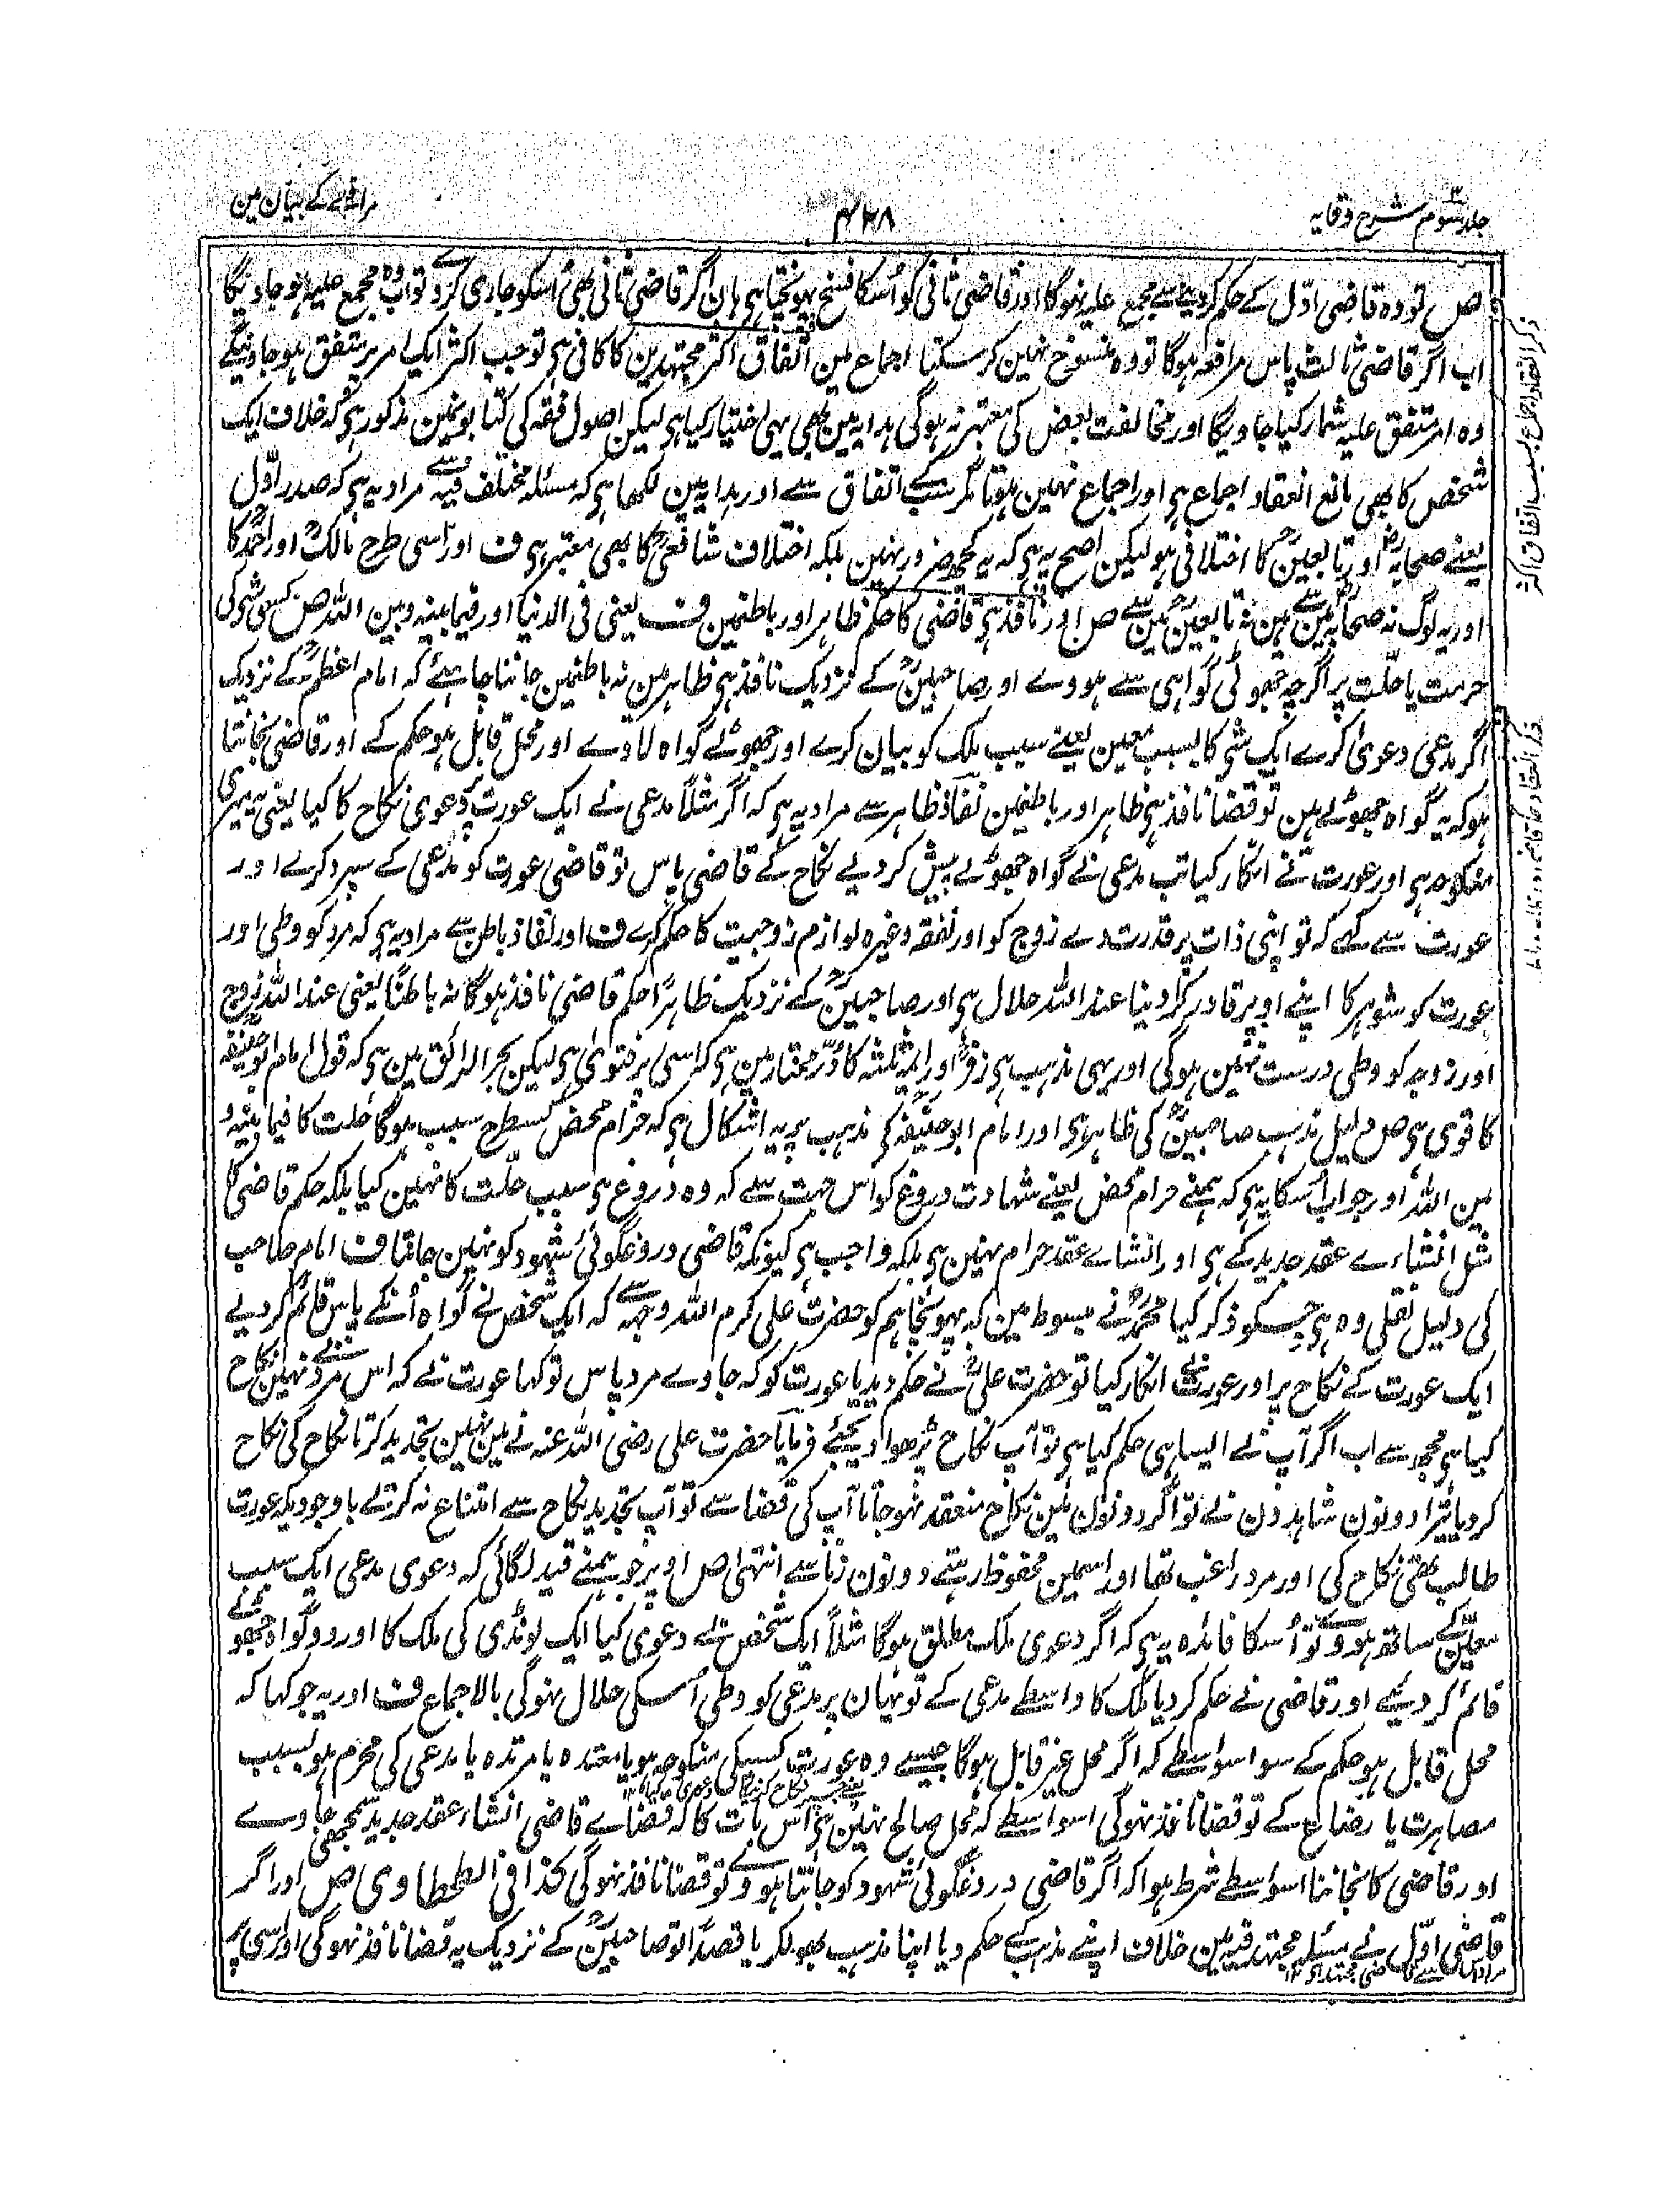 جلد سوم شرح وقایہ
۴۲۸
مرافعے کے بیان مین
ص تو وہ قاضی اوّل کے حکم کر دینے سے مجمع علیہ نہوگا اور قاضی ثانی کو اُسکا فسخ پہونچتا ہی ہان اگر قاضی ثانی بھی اُسکو جاری کردے تو اب وہ مجمع علیہ ہو جاویگا
اب اگر قاضی ثالث پاس مرافعہ ہوگا تو وہ منسوخ نہین کر سکتا اجماع مین اتفاق اکثر مجتہدین کا کافی ہی تو جب اکثر ایک امر پر متفق ہو جاوینگے
وہ امر متفق علیہ شمار کیا جاویگا اور مخالفت بعض کی معتبر نہ ہوگی ہدایہ مین بھی یہی اختیار کیا ہی لیکن اصول فقہ کی کتابونمین مذکور ہی کہ خلاف ایک
شخص کا بھی مانع انعقاد اجماع ہی اور اجماع نہین ہوتا مگر سب کے اتفاق سے اور ہدایہ مین لکھا ہی کہ مسئلہ مختلف فیہ سے مراد یہ ہی کہ صدر اوّل
یعنے صحابہؓ اور تابعینؒ کا اختلافی ہو لیکن اصح یہ ہی کہ یہ کچھ ضرور نہین بلکہ اختلاف شافعیؒ کا بھی معتبر ہی ف اور اسی طرح مالکؒ اور احمدؒ کا
اور یہ لوگ نہ صحابہؓ مین سے ہین نہ تابعینؒ مین سے ص اور نافذ ہی قاضی کا حکم ظاہر اور باطنمین ف یعنی فی الدنیا اور فیما بینہ وبین اللہ ص کسی شی کی
حرمت یا حلّت پر اگرچہ جھوٹی گواہی سے ہووے اور صاحبینؒ کے نزدیک نافذ ہی ظاہر مین نہ باطنمین جاننا چاہئے کہ امام اعظمؒ کے نزدیک
اگر مدعی دعویٰ کرے ایک شی کا بسبب معین یعنے سبب ملک کو بیان کرے اور جھوٹے گواہ لاوے اور محل قابل ہو حکم کے اور قاضی نجانتا
ہو کہ یہ گواہ جھوٹے ہین تو قضا نافذ ہی ظاہر اور باطنمین نفاذ ظاہر سے مراد یہ ہی کہ اگر مثلاً مدعی نے ایک عورت پر دعوی نکاح کا کیا یعنی یہ میری
منکوحہ ہی اور عورت نے انکار کیا تب مدعی نے گواہ جھوٹے پیش کر دیے نکاح کے قاضی پاس تو قاضی عورت کو مدعی کے سپرد کرے اور
عورت سے کہے کہ تو اپنی ذات پر قدرت دے زوج کو اور نفقہ وغیرہ لوازم زوجیت کا حکم کرے ف اور نفاذ باطن سے مراد یہ ہی کہ مرد کو وطی اور
عورت کو شوہر کا اپنے اوپر قادر کر دینا عند اللہ حلال ہی اور صاحبینؒ کے نزدیک ظاہراً حکم قاضی نافذ ہوگا نہ باطناً یعنی عند اللہ زوج
اور زوجہ کو وطی درست نہین ہوگی اور یہی مذہب ہی زفرؒ اور ائمہ ثلثہ کا دُرّ مختار مین ہی کہ اسی پر فتویٰ ہی لیکن بحر الرائق مین ہی کہ قول امام ابو حنیفہؒ
کا قوی ہی ص دلیل مذہب صاحبینؒ کی ظاہر ہی اور امام ابو حنیفہؒ کے مذہب پر یہ اشکال ہی کہ حرام محض کسطرح سبب ہوگا حلت کا فیما بینہ و
بین اللہ اور جواب اُسکا یہ ہی کہ ہمنے حرام محض یعنے شہادت دروغ کو اس جہت سے کہ وہ دروغ ہی سبب حلّت کا نہین کیا بلکہ حکم قاضی کا
مثل انشاے عقد جدید کے ہی اور انشاے عقد حرام نہین ہی بلکہ واجب ہی کیونکہ قاضی دروغگوئی شہود کو نہین جانتا ف امام صاحب
کی دلیل نقلی وہ ہی جسکو ذکر کیا محمدؒ نے مبسوط مین کہ پہونچا ہم کو حضرت علی کرم اللہ وجہہ سے کہ ایک شخص نے گواہ اُنکے پاس قائم کر دیے
ایک عورت کے نکاح پر اور عورت نے انکار کیا تو حضرت علیؓ نے حکم دیدیا عورت کو کہ جاوے مرد پاس تو کہا عورت نے کہ اس مرد نے نہین نکاح
کیا ہی مجھ سے اب اگر آپ نے ایسا ہی حکم کیا ہی تو آپ نکاح پڑھوا دیجئے فرمایا حضرت علی رضی اللہ عنہ نے مین نہین تجدید کرتا نکاح کی نکاح
کر دیا تیرا دونون شاہدون نے تو اگر دونون مین نکاح منعقد نہو جاتا آپ کی قضا سے تو آپ تجدید نکاح سے امتناع نہ کرتے باوجودیکہ عورت
طالب تھی نکاح کی اور مرد راغب تھا اور اسمین محفوظ رہتے دونون زنا سے انتہی ص اوپر جو ہمنے قید لگائی کہ دعوی مدعی ایک سبب
معیّن کے ساتھ ہووے تو اُسکا فائدہ یہ ہی کہ اگر دعوی ملک مطلق ہوگا مثلاً ایک شخص نے دعوی کیا ایک لونڈی کی ملک کا اور دو گواہ جھوٹے
قائم کر دیئے اور قاضی نے حکم کر دیا ملک کا واسطے مدعی کے تو یہان پر مدعی کو وطی اُسکی حلال نہوگی بالاجماع ف اور یہ جو کہا کہ
محل قابل ہو حکم کے سو اسواسطے کہ اگر محل غیر قابل ہوگا جیسے وہ عورت کسیکی منکوحہ ہو یا معتدہ یا مرتدہ یا مدعی کی محرم ہو بسبب
مصاہرت یا رضاع کے تو قضا نافذ نہوگی اسواسطے کہ محل صالح نہین ہی اس بات کا کہ قضاے قاضی انشاء عقد جدید سمجھی جاوے
اور قاضی کا نجاننا اسواسطے شرط ہوا کہ اگر قاضی دروغگوئی شہود کو جانتا ہووے تو قضا نافذ نہوگی کذا فی الطحطاوی ص اور اگر
قاضی اوّل نے مسئلہ مجتہد فیہ مین خلاف اپنے مذہب کے حکم دیا اپنا مذہب بھولکر یا قصداً تو صاحبینؒ کے نزدیک یہ قضا نافذ نہوگی اور اسی پر
ذکر انعقاد اجماع بسبب اتفاق اکثر